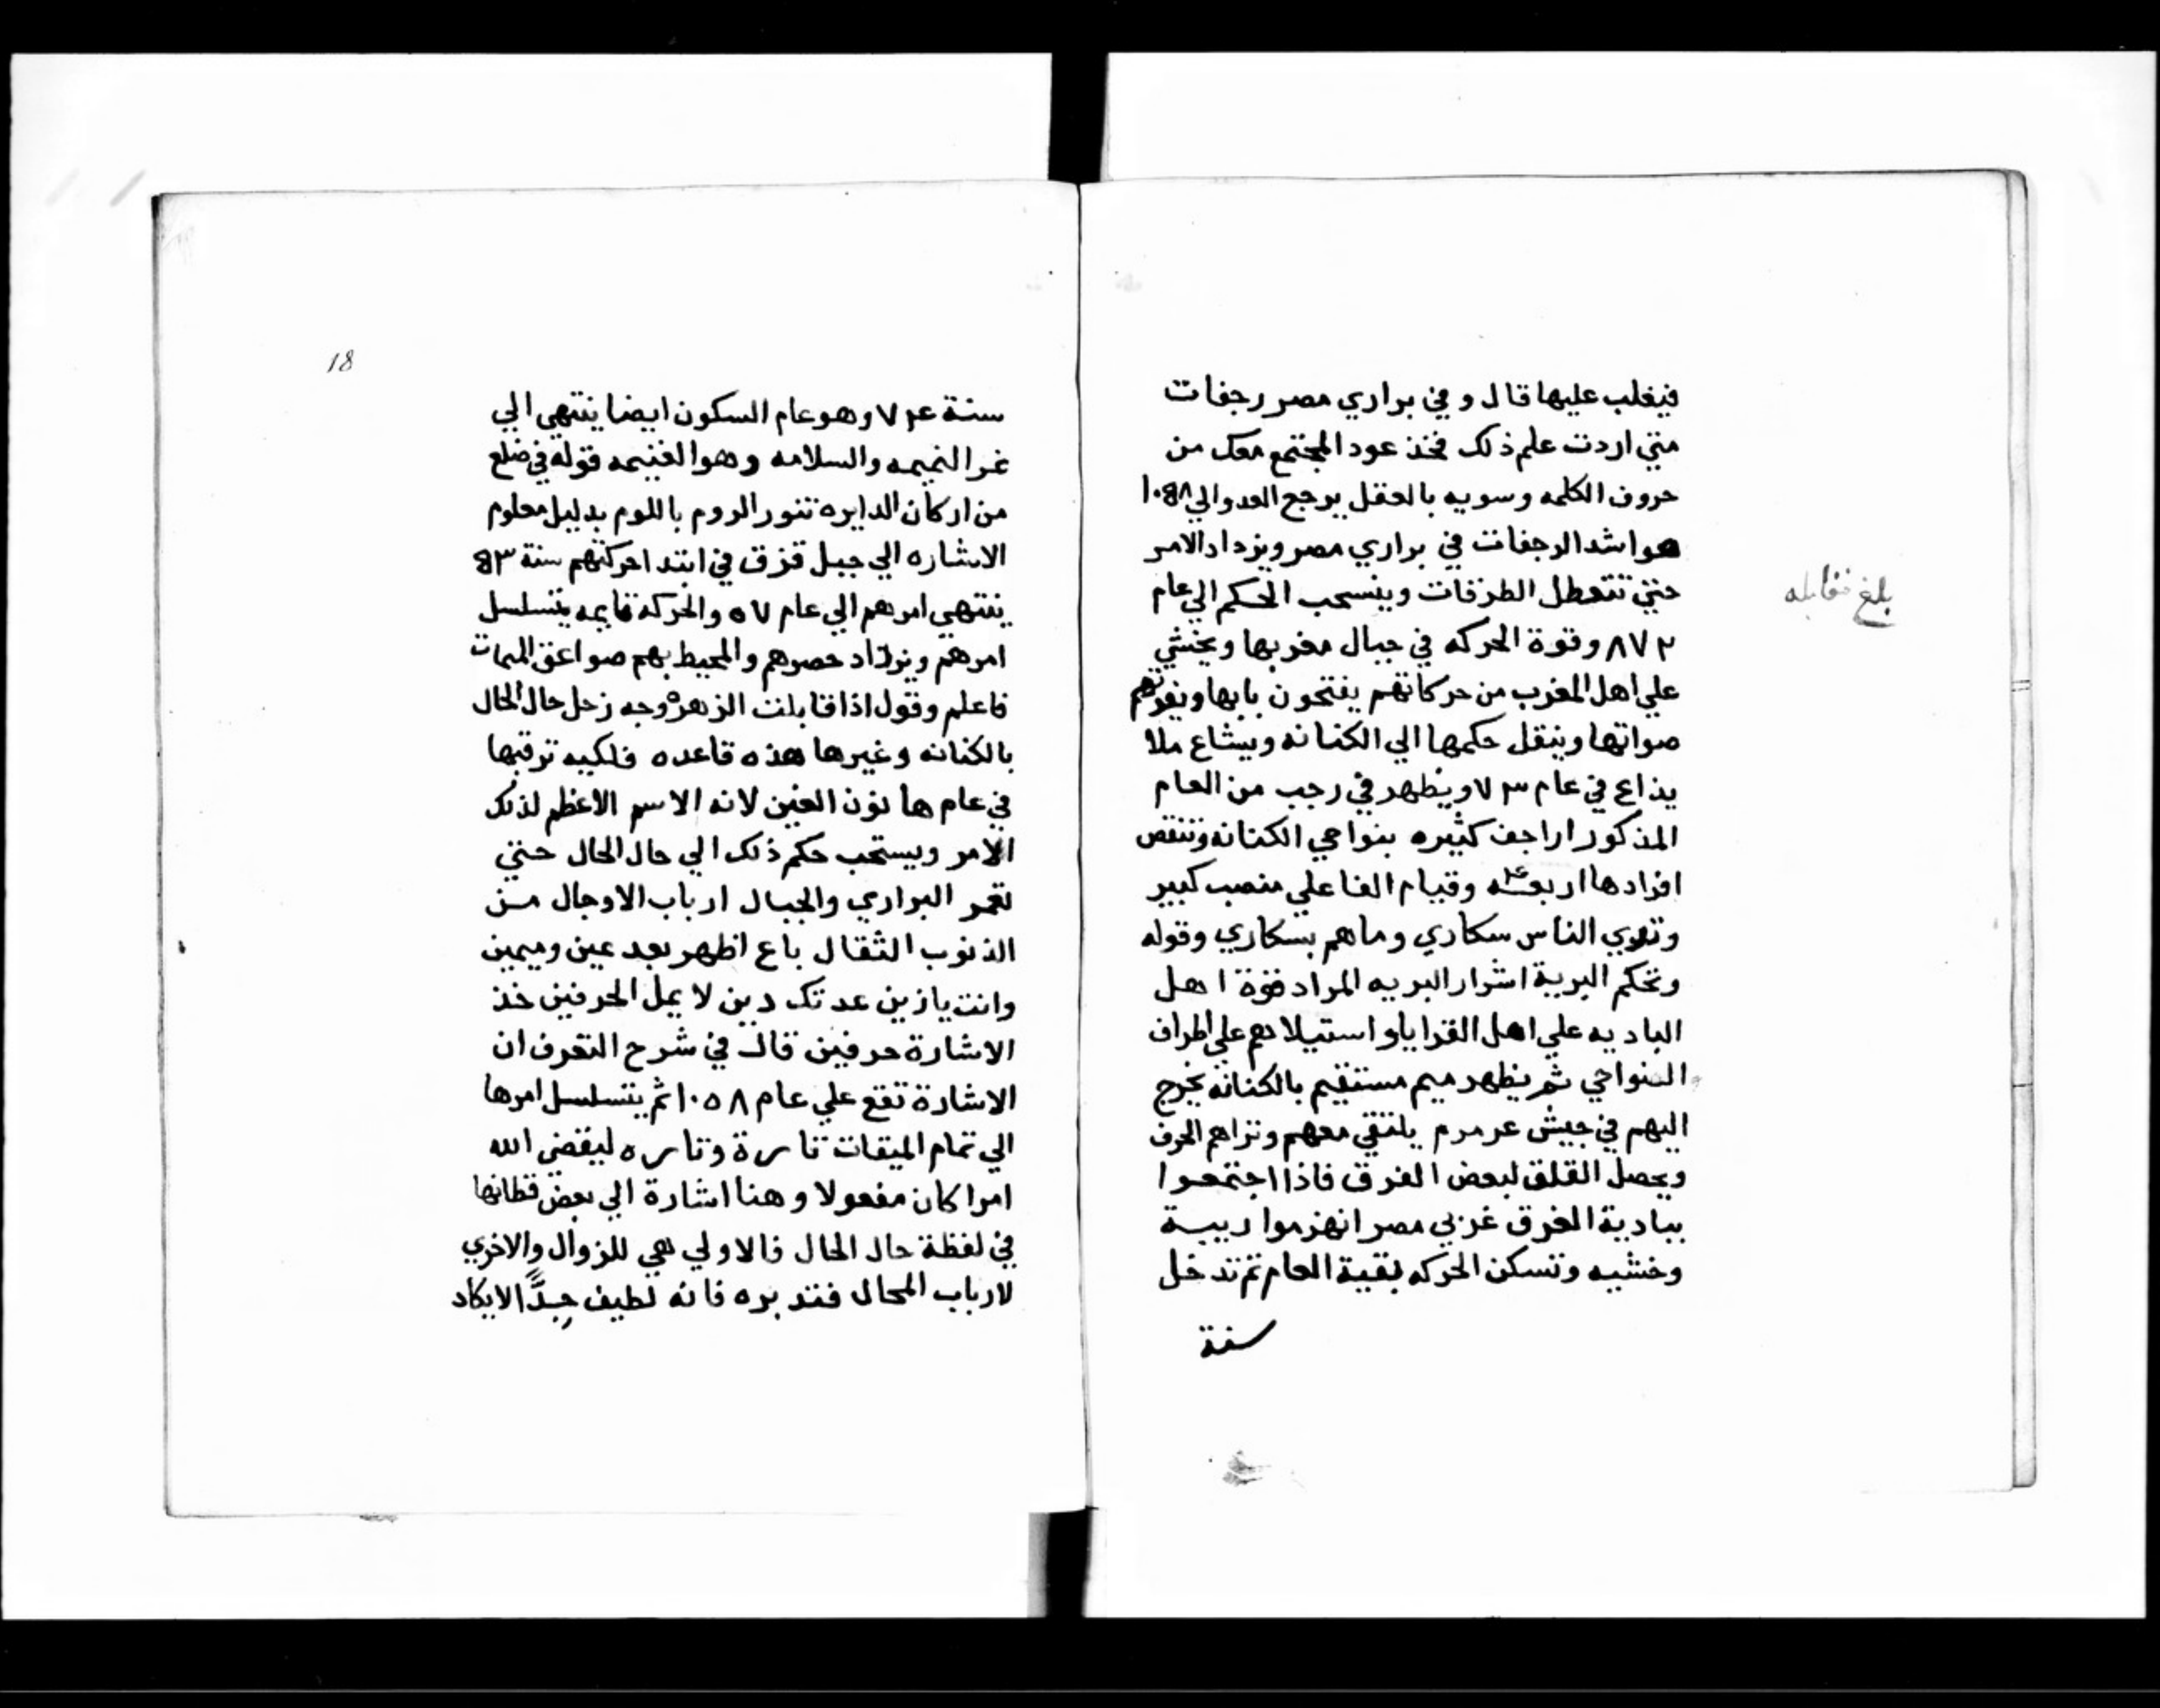 فيغلب عليها قال و في براري مصر رجفات
متي اردت علم ذلك فخذ عود المجتمع معك من
حروف الكلمه وسويه بالعقل يرجع العدد الي
هو اشد الرجفات في براري مصر ويزداد الامر
حتي تتعطل الطرقات وينسحب الحكم الي عام
٨٧٢ وقوة الحركه في جبال مغربها ويخشي
علي اهل المغرب من حركاتهم يفتحون بابها
صواتها وينقل حكمها الي الكنانه ويشاع ملا
يذاع في عام ٧٣ ويظهر في رجب من العام
المذكور اراجف كثيره بنواحي الكنانه وتنقص
افرادها اربعه وقيام الفا علي منصب كبير
وتري الناس سكاري وما هم بسكاري وقوله
وتحكم البرية اشرار البريه المراد قوة اهل
الباديه علي اهل القرايا واستيلاهم علي اطراف
النواحي ثم يظهر ميم مستقيم بالكنانه يخرج
اليهم في جيش عرمرم يلتقي معهم ونزاهم الحرف
ويحصل القلق لبعض الفرق فاذا اجتمعوا
ببادية الفرق غربي مصر انهزموا ريبة
وخشيه وتسكن الحركه بقية العام ثم تدخل
سنة
بلغ مقابله
18
سنة ٧٤ وهو عام السكون ايضا ينتهي الي
غر النميمه والسلامه وهو الغنيمه قوله في ضلع
من اركان الدايره تنور الروم باللوم بدليل معلوم
الاشاره الي جبل قزق في ابتدا حركتهم سنة
ينتهي امرهم الي عام ٥٧ والحركه قايمه يتسلسل
امرهم ويزداد حصرهم والمحيط بهم صواعق الممات
فاعلم وقول اذا قابلت الزهره وجه زحل حال الحال
بالكنانه وغيرها هذه قاعده فلكيه ترقبها
في عام ها نون الغين لانه الاسم الاعظم لذلك
الامر ويستحب حكم ذلك الي حال الحال حتي
تعمر البراري والجبال ارباب الاوجال من
الذنوب الثقال باع اظهر بعد عين وميمين
وانت يازين عدتك دين لا يمل الحرفين خذ
الاشارة حرفين قال في شرح التعرف ان
الاشارة تقع علي عام ١٠٥٨ ثم يتسلسل امرها
الي تمام الميقات تارة وتاره ليقضي الله
امرا كان مفعولا وهنا اشارة الي بعض قطانها
في لفظة حال الحال فالاولي هي للزوال والاخري
لارباب المحال فتدبره فانه لطيف جدًّا لايكاد